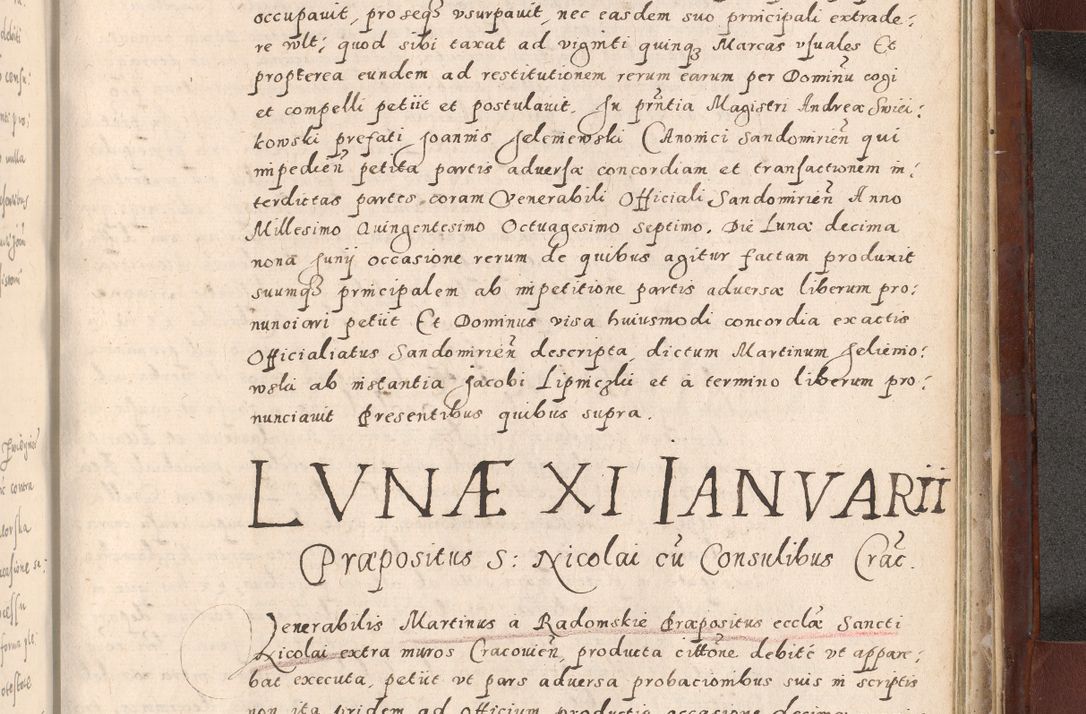 occupauit, pro seqꝫ vsurpauit, nec easdem suo principali extrade:
re vult: quod sibi taxat ad viginti quinqꝫ Marcas vsuales Et
propterea eundem ad restitutionem rerum earum per Dominũ cogi
et compelli petiit et postulauit. In pr̃ntia Magistri Andreæ Swiei:
kowski prefati Joannis Jelemewski Canonici Sandomirieñ qui
impedieñ petita partis aduersæ concordiam et transactionem in:
terdictas partes coram Venerabili Officiali Sandomirieñ Anno
Millesimo Quingentesimo Octuagesimo septimo. Die Lunæ decima
nona Junij occasione rerum de quibus agitur factam produxit
suumqꝫ principalem ab impetitione partis aduersæ liberum pro:
nunciari petiit Et Dominus visa huiusmodi concordia ex actis
Officialiatus Sandomirieñ descripta, dictum Martinum Jeliemo:
wski ab instantia Jacobi Lipniczki et à termino liberum pro:
nunciauit Presentibus quibus supra.
LVNÆ XI IANVARII
Præpositus S: Nicolai cũ Consulibus Crac̃.
Venerabilis Martinus à Radomskie Præpositus ecclæ̃ Sancti
Nicolai extra muros Cracovieñ, producta citt̃one debitè vt appare:
bat executa, petiit vt pars aduersa probacionibus suis in scriptis
non ita pridem ad Officium productis occasione decima